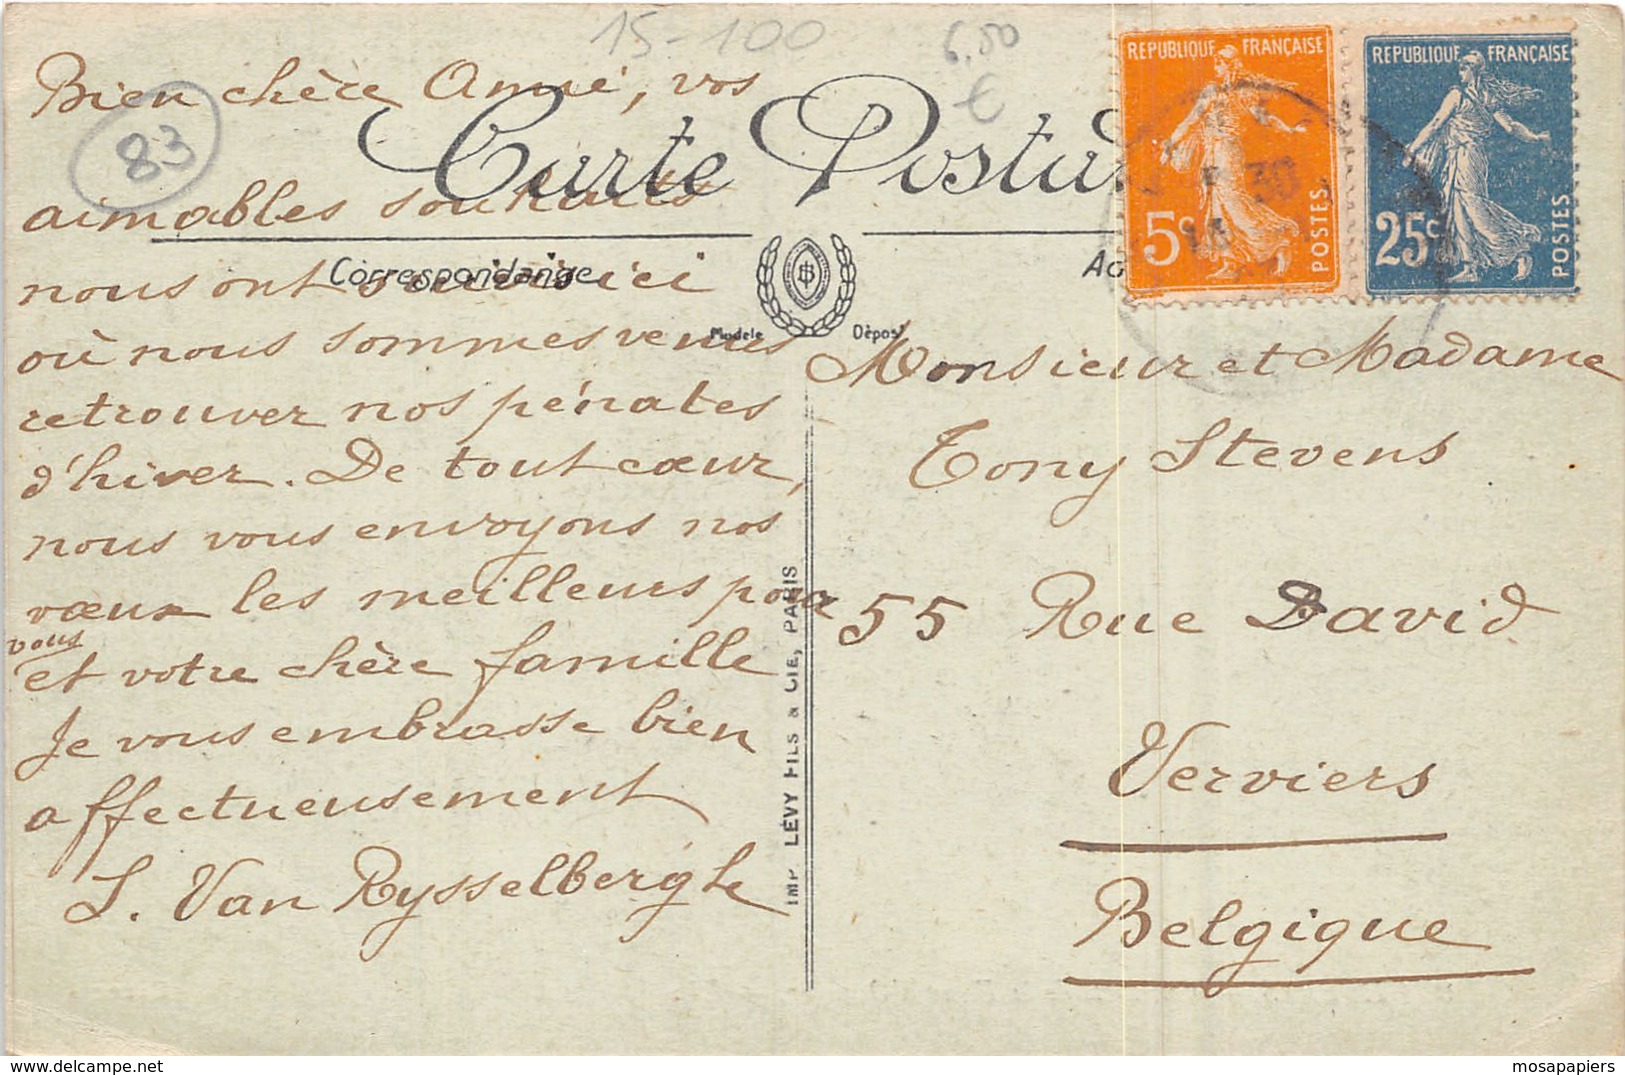 15-100
6,50
€
83
Carte Postal
Correspondance
Modèle Déposé
REPUBLIQUE FRANÇAISE
5c
POSTES
REPUBLIQUE FRANÇAISE
25c
POSTES
30
Bien chère Amie, vos
aimables souhaits
nous ont suivis ici
où nous sommes venus
retrouver nos pénates
d'hiver. De tout cœur,
nous vous envoyons nos
vœux les meilleurs pour
vous
et votre chère famille
Je vous embrasse bien
affectueusement
L. Van Rysselberghe
IMP. LÉVY FILS & CIE, PARIS
Monsieur et Madame
Tony Stevens
55 Rue David
Verviers
Belgique
mosapapiers